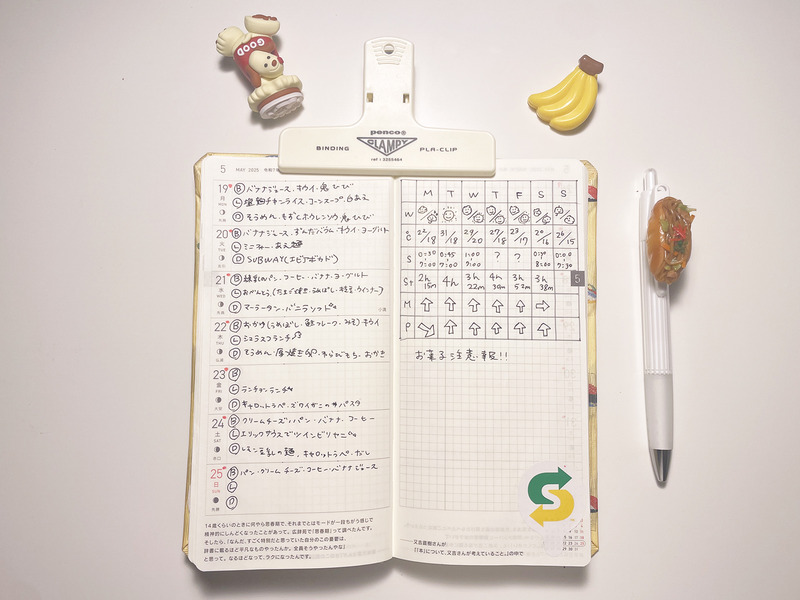 GOOD
penco®
CLAMPY
BINDING PLA-CLIP
5 MAY 2025
19 月 MON
Ⓑ バナナジュース・キウイ・鬼ひび
Ⓛ コーンスープ 白あえ
Ⓓ そうめん・もずくホウレンソウ 鬼ひび
20 火 TUE
Ⓑ バナナジュース・ずんだバウム キウイ・ヨーグルト
Ⓛ ミニカレー・あえ麺
Ⓓ SUBWAY(エビアボカド)
21 水 WED
Ⓑ 練乳パン・コーヒー・バナナ・ヨーグルト
Ⓛ おべんとう(たまご焼き・うめぼし・枝豆・ウィンナー)
Ⓓ マーラータン・バニラソフト
22 木 THU
Ⓑ おかゆ(うめぼし・鮭フレーク・みそ)キウイ
Ⓛ シュラスコランチ
Ⓓ そうめん・厚焼き卵・わらびもち・おかき
23 金 FRI
Ⓑ
Ⓛ ランチョンランチ
Ⓓ キャロットラペ・ズワイガニのパスタ
24 土 SAT
Ⓑ クリームチーズ・パン・バナナ・コーヒー
Ⓛ エリックサウスでツインビリヤニ
Ⓓ レモン豆乳の麺・キャロットラペ・だし
25 日 SUN
Ⓑ パン・クリームチーズ・コーヒー・バナナジュース
Ⓛ
Ⓓ
14歳くらいのときに何やら思春期で、それまでとはモードが一段ちがう感じで
精神的にしんどくなったことがあって。広辞苑で「思春期」って調べたんです。
そしたら、「なんだ、すごく特別だと思っていた自分のこの憂鬱は、
辞書に載るほど平凡なものやったんか。全員そうやったんやな」
と思って。なるほどなって、ラクになったんです。
M T W T F S S
W
℃ 22/18 31/18 29/20 27/18 23/17 20/16 26/15
S 0:30 7:00 0:45 7:00 1:00 9:00 ? ? 0:30 8:00 0:00 7:30
St 2h 15m 4h 3h 22m 4h 39m 3h 52m 3h 38m
M ⇧ ⇧ ⇧ ⇧ ⇧ ⇨
P ⇧ ⇧ ⇧ ⇧ ⇧
5
お菓子注意報!!
S
——又吉直樹さんが
『「本」について、又吉さんが考えていること。』の中で